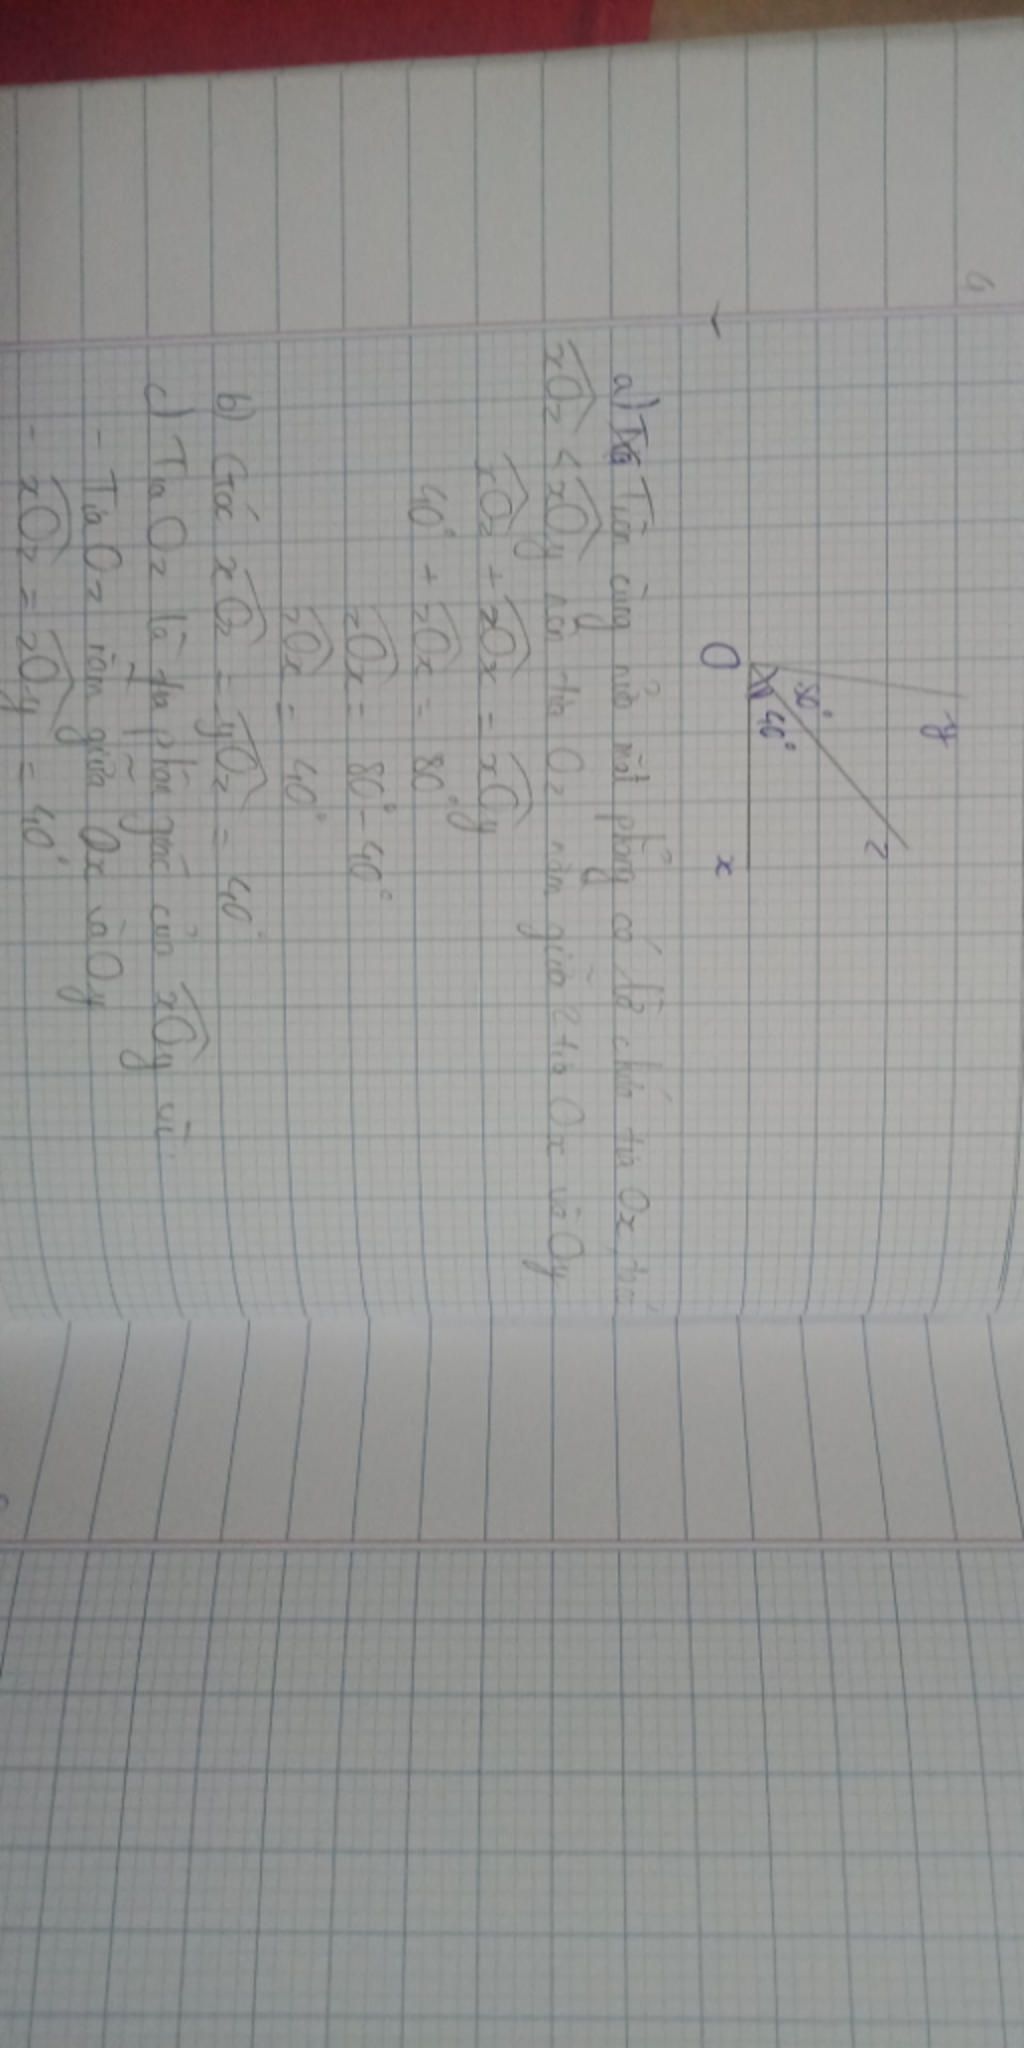 y
z
80°
40°
O
x
a) Trên cùng nửa mặt phẳng có bờ chứa tia Ox, ta có
xOz < xOy nên tia Oz nằm giữa 2 tia Ox và Oy
xOz + zOx = xOy
40° + zOx = 80°
zOx = 80° - 40°
zOx = 40°
b) Góc xOz = yOz = 40°
c) Tia Oz là tia phân giác của xOy vì
- Tia Oz nằm giữa Ox và Oy
- xOz = zOy = 40°